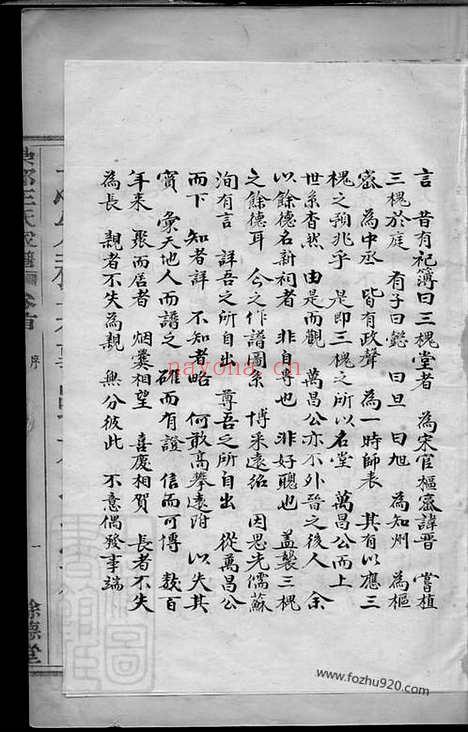 言　昔有祀簿曰三槐堂者　為宋官樞密諱晉　嘗植
三槐於庭　有子曰懿　曰旦　曰旭　為知州　為樞
密　為中丞　皆有政聲　為一時師表　其有以應三
槐之預兆乎　是即三槐之所以名堂　萬昌公而上
世系杳然　由是而觀　萬昌公亦不外晉之後人　余
以餘德名新祠者　非自尊也　非好聽也　蓋襲三槐
之餘德耳　今之作譜圖系　博采遠紹　因思先儒蘇
洵有言　詳吾之所自出　尊吾之所自出　從萬昌公
而下　知者詳　不知者略　何敢高攀遠附　以失其
實　彙天地人而譜之　確而有證　信而可傳　數百
年來　聚而居者　烟爨相望　喜慶相賀　長者不失
為長　親者不失為親　無分彼此　不意偶發事端
王氏
卷首
序
一
餘德堂
nayona.cn
www.fozhu920.com